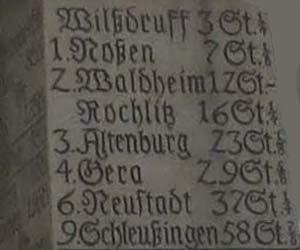 Wilßdruff 3 St.
1. Noßen 7 St.
2. Waldheim 12 St.-
Rochlitz 16 St.
3. Altenburg 23 St.
4. Gera 29 St.
6. Neustadt 37 St.
9. Schleußingen 58 St.